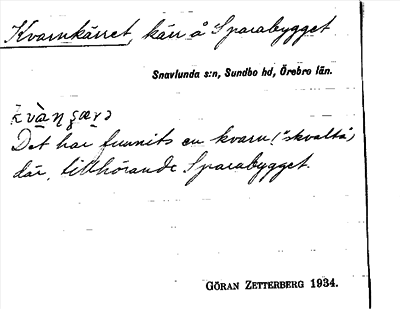 Kvarnkärret, kärr å Sparabygget
Snavlunda s:n, Sundbo hd, Örebro län.
Det har funnits en kvarn ("skvalta")
där, tillhörande Sparabygget.
GÖRAN ZETTERBERG 1934.